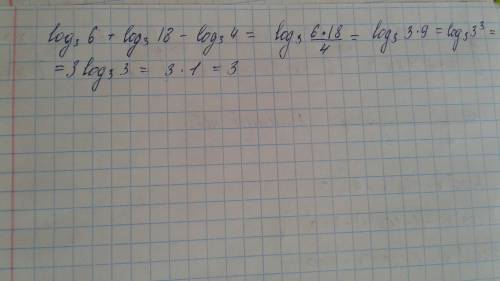 log₃ 6 + log₃ 18 - log₃ 4 = log₃ (6·18)/4 = log₃ 3·9 = log₃ 3³ =
= 3 log₃ 3 = 3 · 1 = 3